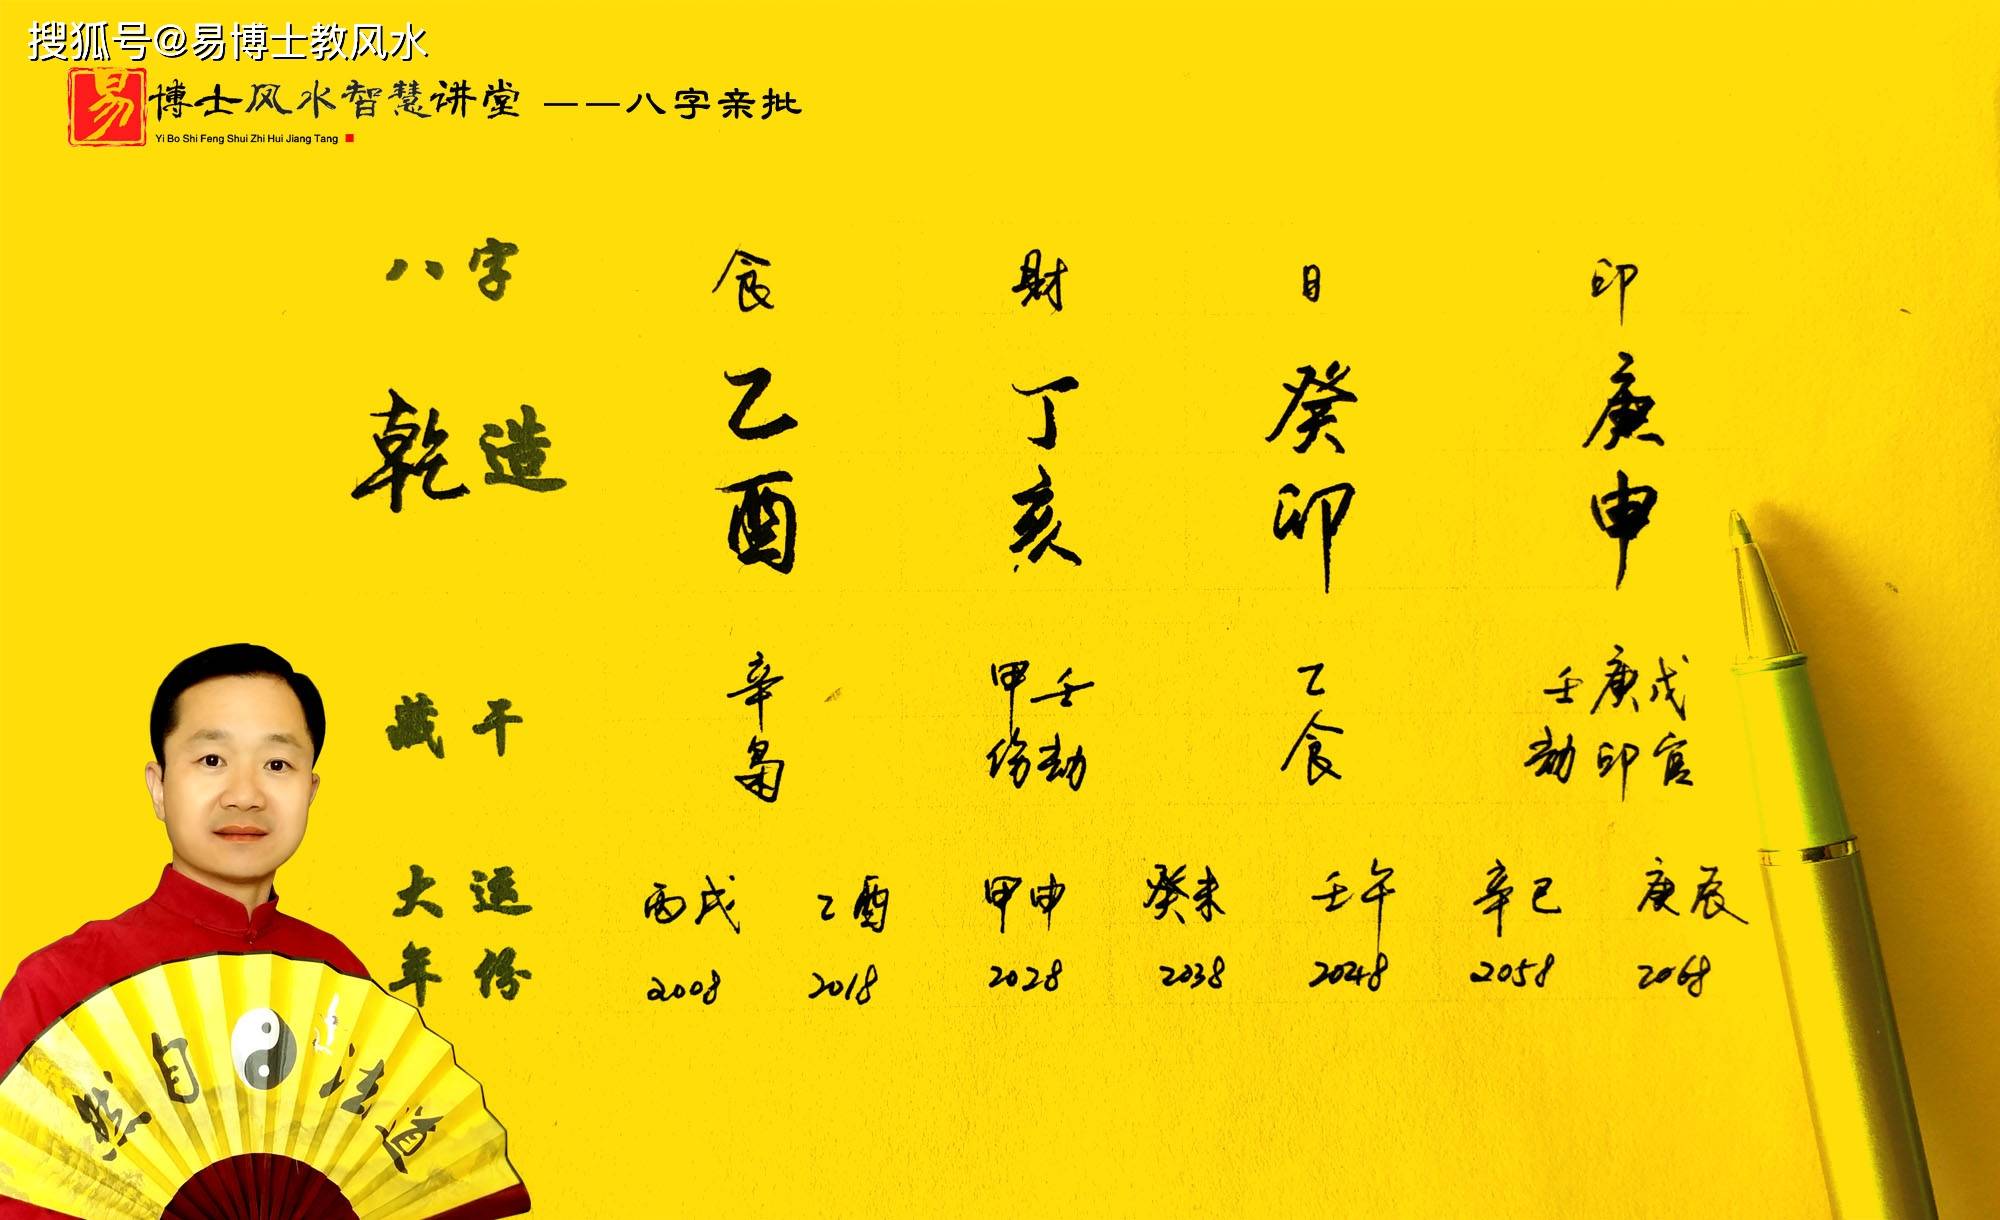 搜狐号@易博士教风水
易博士风水智慧讲堂 ——八字亲批
Yi Bo Shi Feng Shui Zhi Hui Jiang Tang
八字 食 财 日 印
乾造 乙 丁 癸 庚
酉 亥 卯 申
藏干 辛 甲壬 乙 壬庚戊
枭 伤劫 食 劫印官
大运 丙戌 乙酉 甲申 癸未 壬午 辛巳 庚辰
年份 2008 2018 2028 2038 2048 2058 2068
然自法道